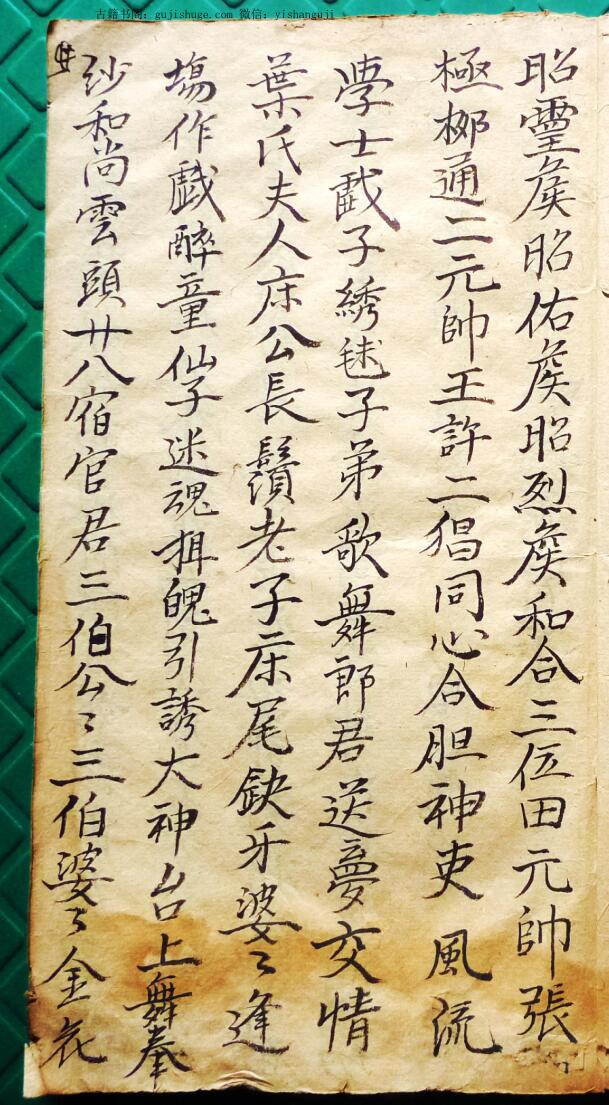 古籍书阁：gujishuge.com 微信：yishanguji
昭靈侯昭佑侯昭烈侯和合三伍田元帥張
極梛通二元帥王許二猖同心合胆神吏風流
學士戯子綉毬子弟歌舞郎君送夢交情
葉氏夫人床公長鬚老子床尾缺牙婆〻逢
塲作戯醉童仙子迷魂揖魄引誘大神台上舞拳
沙和尚雲頭廿八宿官君三伯公〻三伯婆〻金衣